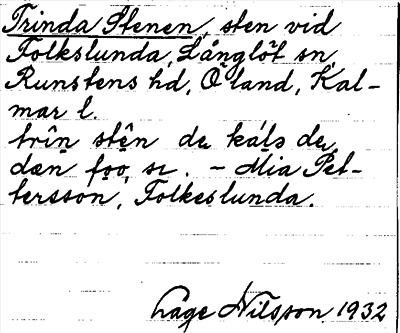 Trinda Stenen, sten vid
Folkslunda, Långlöt sn,
Runstens hd, Öland, Kal-
mar l.
trin stên de kals de
dæn foo, sɪ. – Mia Pet-
tersson, Folkeslunda.
Låge Nilsson 1932